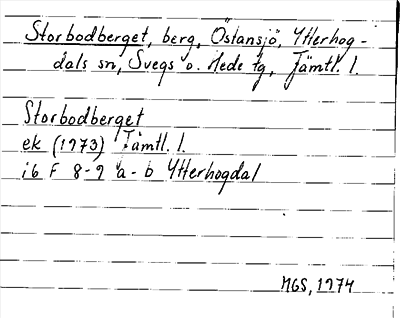 Storbodberget, berg, Östansjö, Ytterhog-
dals sn, Svegs o. Hede tg, Jämtl. l.
Storbodberget
ek (1973) Jämtl. l.
i6 F 8-9 a-b Ytterhogdal
MGS, 1974